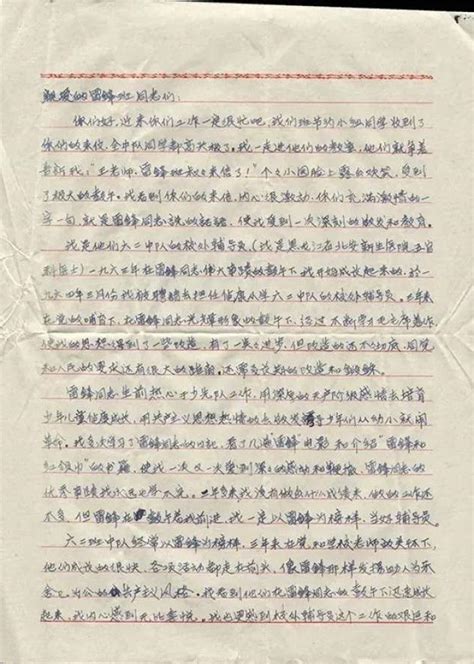 亲爱的雷锋班同志们：
你们好，近来你们工作一定很忙吧，我们班节约小组同学收到了
你们的来信，全中队同学都高兴极了。我一走进他们的教室，他们就拿着
告诉我："王老师，雷锋班叔叔来信了！"个个小园脸上露出欢笑，受到
了极大的鼓午。我看到你们的来信，内心很激动，你们充满激情的一
字一句，就是雷锋同志说的话语，使我受到一次深刻的启发和教育。
我是他们六二中队的校外辅导员（我是黑龙江省北安
科医士）一九六三年在雷锋同志伟大事绩的鼓午下我开始成长起来的，於一
九六四年三月份我被聘请去担任 六二中队的校外辅导员。三年来
在党的哺育下，在雷锋同志光辉形象的鼓午下，经过不断学习毛主席著作
使我的思想得到了一些改造，有了一点点进步，但改造的还不彻底，同党
和人民的要求还有很大的距离，还需要长期的改造和锻鍊。
雷锋同志生前热心于少先队工作，用深厚的无产阶级感情去培育
少年儿童健康成长，用共产主义思想热情的去启发引导少年们从幼小就闹
革命。我多次学习了雷锋同志的日记，看了几遍雷锋电影和介绍"雷锋和
红领巾"的书籍，使我一次又一次受到深深的感动和鞭策，雷锋同志的
优秀事绩我永远也学不完。三年多来我没有做出什么成绩来，做的工作还
不多，但雷锋在鼓午着我前进，我一定以雷锋为榜样，当好辅导员。
六二班中队经常以雷锋为榜样，三年来在党和学校老师的关怀下，
他们成长的很快，各项活动都走在前头，像雷锋那样发扬助人为乐
舍己为公的共产主义风格。我看到他们在雷锋同志的鼓午下迅速成长
起来，我内心感到无比喜悦。我也感到校外辅导员这个工作的艰巨和